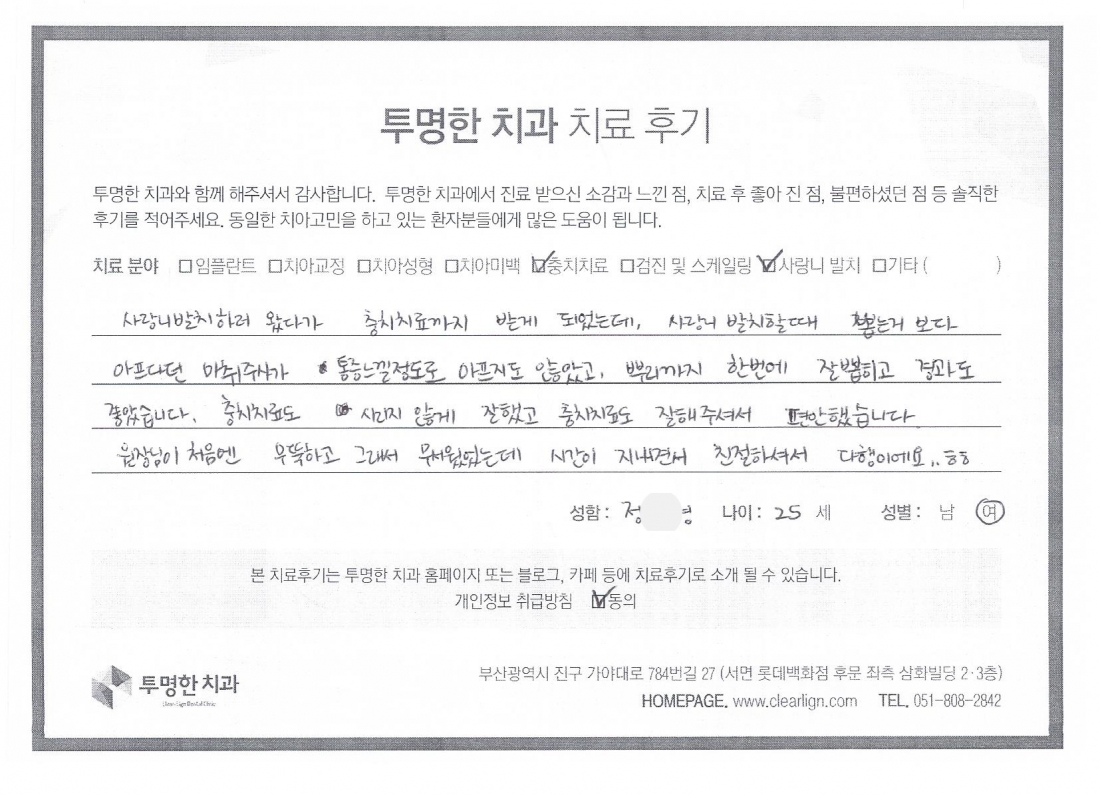 투명한 치과 치료 후기
투명한 치과와 함께 해주셔서 감사합니다. 투명한 치과에서 진료 받으신 소감과 느낀 점, 치료 후 좋아 진 점, 불편하셨던 점 등 솔직한
후기를 적어주세요. 동일한 치아고민을 하고 있는 환자분들에게 많은 도움이 됩니다.
치료 분야 □임플란트 □치아교정 □치아성형 □치아미백 ☑충치치료 □검진 및 스케일링 ☑사랑니 발치 □기타 ( )
사랑니발치하러 왔다가 충치치료까지 받게 되었는데, 사랑니 발치할때 뽑는거 보다
아프다던 마취주사가 통증느낄정도로 아프지도 않았고, 뿌리까지 한번에 잘뽑히고 경과도
좋았습니다. 충치치료도 시리지 않게 잘했고 충치치료도 잘해주셔서 편안했습니다
원장님이 처음엔 무뚝하고 그래서 무서웠었는데 시간이 지나면서 친절하셔서 다행이에요,, ㅎㅎ
성함 : 정 영 나이 : 25 세 성별 : 남 여
본 치료후기는 투명한 치과 홈페이지 또는 블로그, 카페 등에 치료후기로 소개 될 수 있습니다.
개인정보 취급방침 ☑동의
투명한 치과
부산광역시 진구 가야대로 784번길 27 (서면 롯데백화점 후문 좌측 삼화빌딩 2·3층)
HOMEPAGE. www.clearlign.com TEL. 051-808-2842